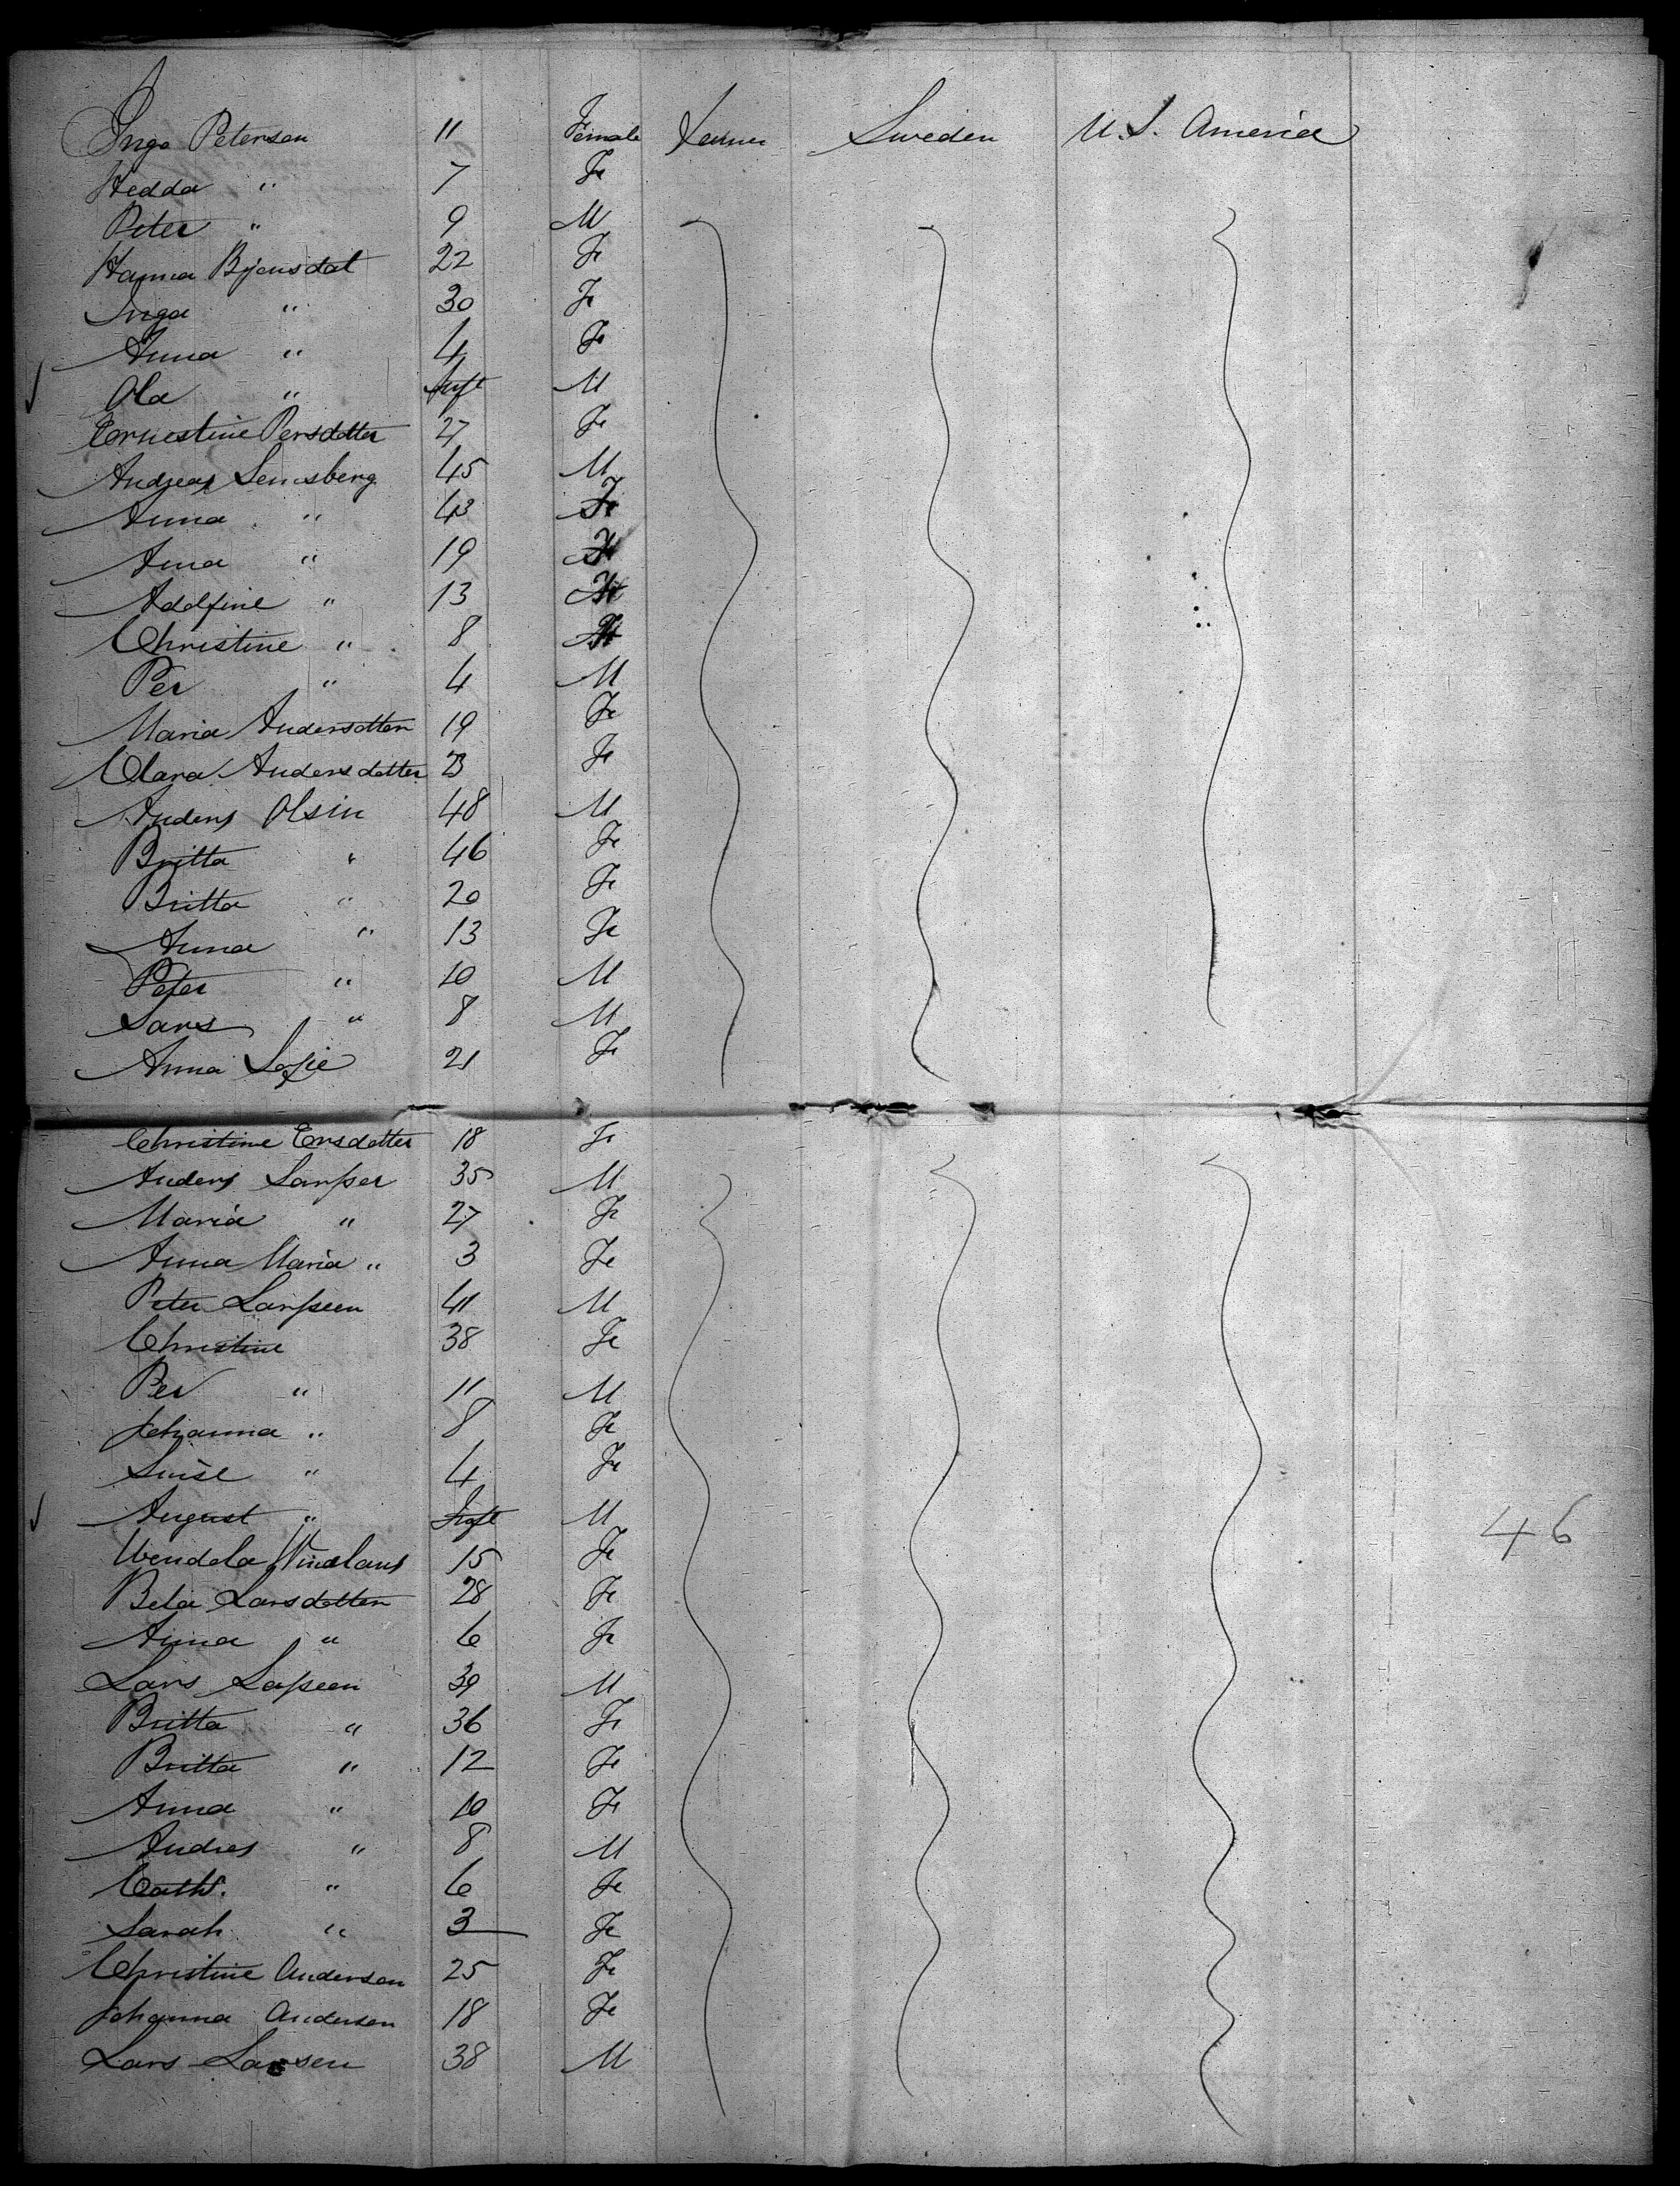 Inga Petersen 11 Female Farmer Sweden U.S. America
Hedda " 7 Fe
Peter " 9 M
Hanna Bjensdat 22 Fe
Inga " 30 Fe
Anna " 4 Fe
Ola " Inft M
Ernestine Persdotter 27 Fe
Andreas Lensberg 45 M
Anna " 43 Fe
Anna " 19 Fe
Adolfine " 13 Fe
Christine " 8 Fe
Per " 4 M
Maria Andersdotter 19 Fe
Clara Andersdotter 23 Fe
Anders Olsin 48 M
Britta " 46 Fe
Britta " 20 Fe
Anna " 13 Fe
Peter " 10 M
Lars " 8 M
Anna Sofie 21 Fe
Christine Ersdotter 18 Fe
Anders Larsser 35 M
Maria " 27 Fe
Anna Maria " 3 Fe
Peter Larsseen 41 M
Christine 38 Fe
Per " 11 M
Johanna " 8 Fe
Luise " 4 Fe
August " Inft M 46
Wendela 15 Fe
Beta Larsdotter 28 Fe
Anna " 6 Fe
Lars Lasseen 39 M
Britta " 36 Fe
Britta " 12 Fe
Anna " 10 Fe
Andres " 8 M
Cath. " 6 Fe
Sarah " 3 Fe
Christine Andersen 25 Fe
Johanna Andersen 18 Fe
Lars Larsen 38 M